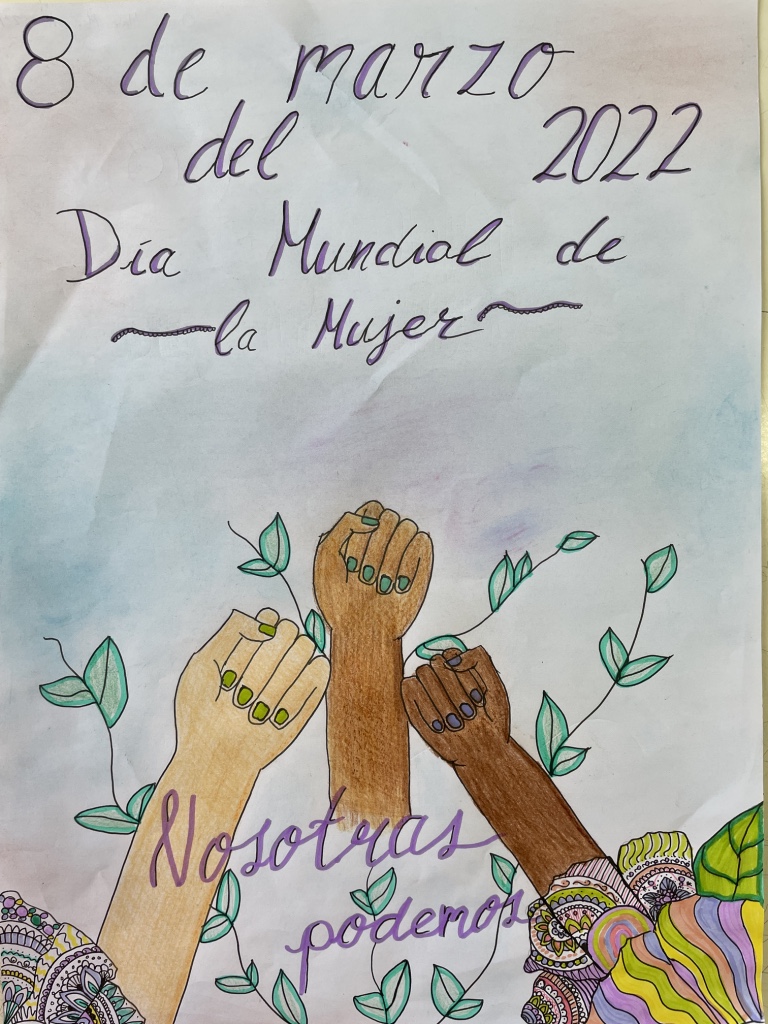 8 de marzo
del 2022
Día Mundial de
la Mujer
Nosotras
podemos